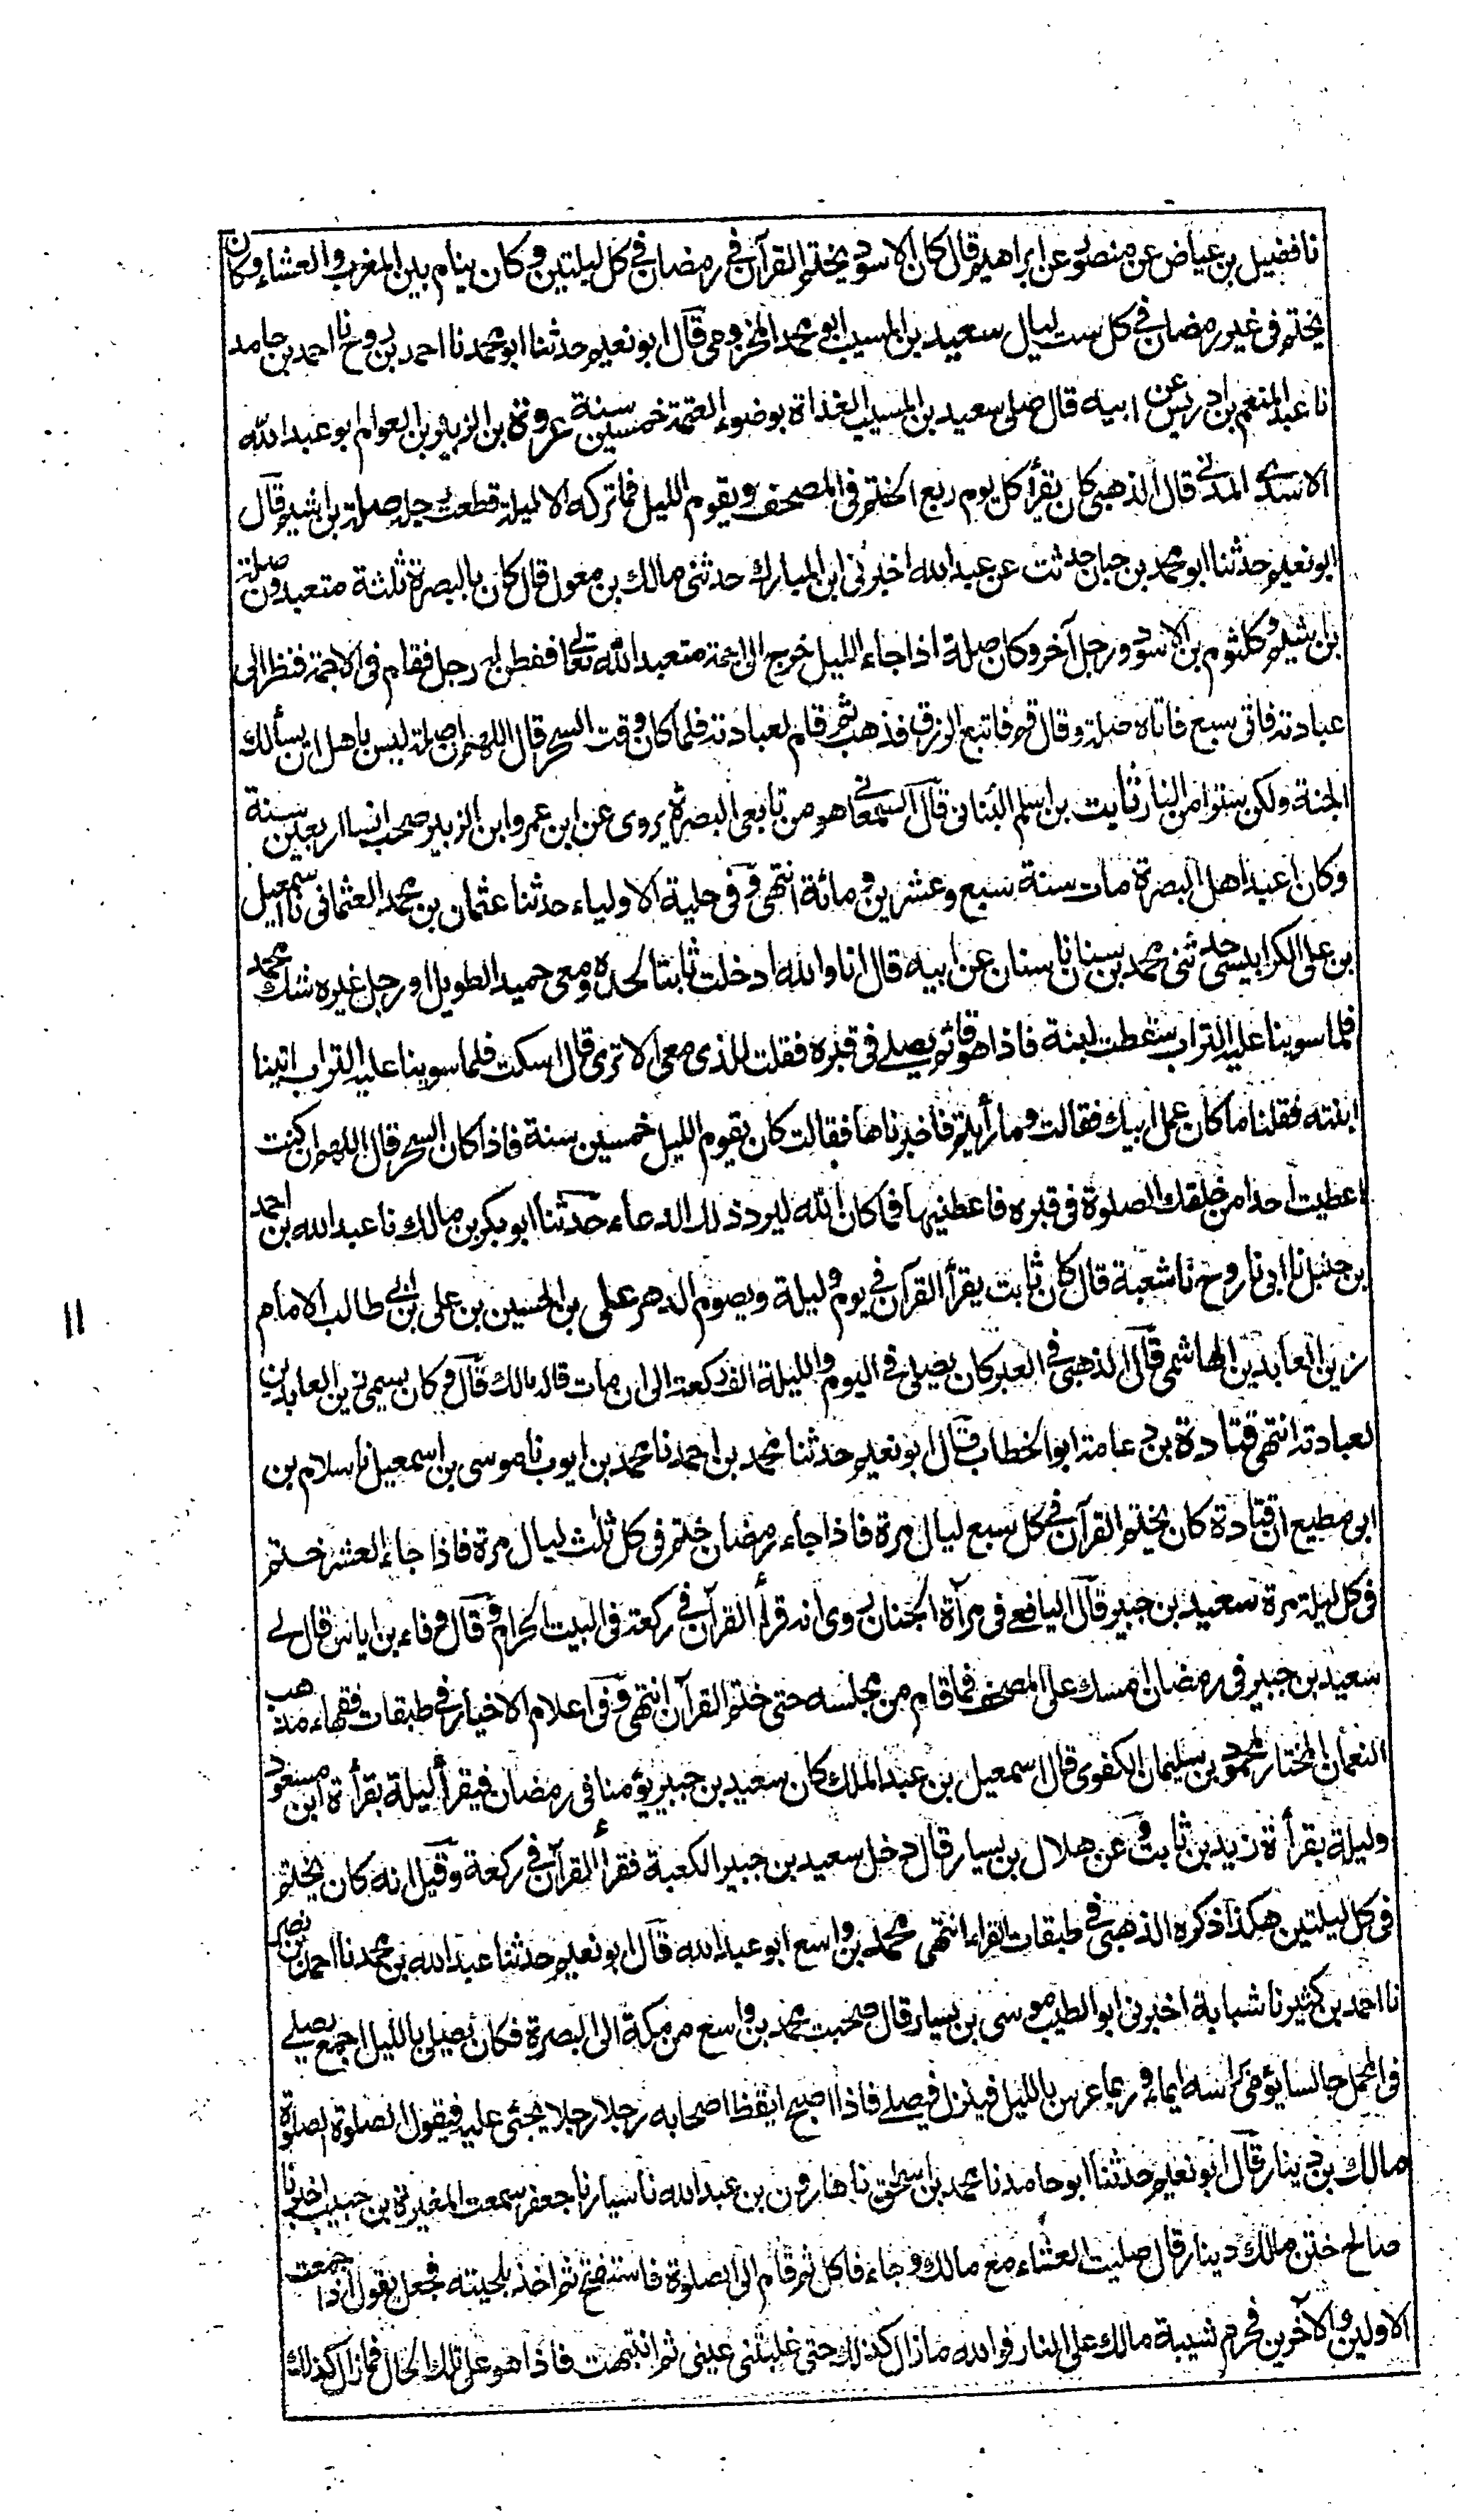 نا فضيل بن عياض عن منصور عن ابراهيم قال كان الاسود يختم القرآن في رمضان في كل ليلتين وكان ينام بين المغرب والعشاء وكان
يختم في غير رمضان في كل ست ليال سعيد بن المسيب ابو محمد المخزومي قال ابو نعيم حدثنا ابو محمد نا احمد بن روح نا احمد بن حامد
نا عبد المنعم بن ادريس عن ابيه قال صلى سعيد بن المسيب الغداة بوضوء العتمة خمسين سنة عروة بن الزبير بن العوام ابو عبد الله
الاسدي المدني قال الذهبي كان يقرأ كل يوم ربع الختم في المصحف ويقوم الليل فما تركه الا ليلة قطعت رجله صلة بن اشيم قال
ابو نعيم حدثنا ابو محمد بن حبان حدثت عن عبد الله اخبرني ابن المبارك حدثني مالك بن مغول قال كان بالبصرة ثلثة متعبدون صلة
بن اشيم وكلثوم بن الاسود ورجل آخر وكان صلة اذا جاء الليل خرج الى اجمة متعبد الله تعالى ففطن له رجل فقام في الاجمة فنظر الى
عبادته فاتى سبع فاتاه صلة وقال قم فاتبع الرزق فذهب ثم قام لعبادته فلما كان وقت السحر قال اللهم ان صلة ليس باهل ان يسألك
الجنة ولكن سترا من النار ثابت بن اسلم البناني قال السمعاني هو من تابعي البصرة يروى عن ابن عمر وابن الزبير صحب انسا اربعين سنة
وكان اعبد اهل البصرة مات سنة سبع وعشرين ومائة انتهى وفي حلية الاولياء حدثنا عثمان بن محمد العثماني نا اسمعيل
بن علي الكرابيسي حدثني محمد بن سنان نا سنان عن ابيه قال انا والله ادخلت ثابتا لحده ومعي حميد الطويل او رجل غيره شك محمد
فلما سوينا عليه التراب سقطت لبنة فاذا هو قائم يصلي في قبره فقلت للذي معي الا ترى قال اسكت فلما سوينا عليه التراب اتينا
ابنته فقلنا ما كان عمل ابيك فقالت وما رأيتم فاخبرناها فقالت كان يقوم الليل خمسين سنة فاذا كان السحر قال اللهم ان كنت
اعطيت احدا من خلقك الصلوة في قبره فاعطنيها فما كان الله ليرد ذلك الدعاء حدثنا ابو بكر بن مالك نا عبد الله بن احمد
بن حنبل نا ابي نا روح نا شعبة قال كان ثابت يقرأ القرآن في يوم وليلة ويصوم الدهر علي بن الحسين بن علي بن ابي طالب الامام
زين العابدين الهاشمي قال الذهبي في العبر كان يصلي في اليوم والليلة الف ركعة الى ان مات قاله مالك قال وكان يسمى زين العابدين
لعبادته انتهى قتادة بن دعامة ابو الخطاب قال ابو نعيم حدثنا محمد بن احمد نا محمد بن ايوب نا موسى بن اسمعيل نا سلام بن
ابي مطيع ان قتادة كان يختم القرآن في كل سبع ليال مرة فاذا جاء رمضان ختم في كل ثلث ليال مرة فاذا جاء العشر ختم
في كل ليلة مرة سعيد بن جبير قال اليافعي في مرآة الجنان روى انه قرأ القرآن في ركعة في البيت الحرام وقال وفاء بن اياس قال لي
سعيد بن جبير في رمضان امسك علي المصحف فما قام من مجلسه حتى ختم القرآن انتهى وفي اعلام الاخيار في طبقات فقهاء مذهب
النعمان المختار لمحمود بن سليمان الكفوي قال اسمعيل بن عبد الملك كان سعيد بن جبير يؤمنا في رمضان فيقرأ ليلة بقرأة ابن مسعود
وليلة بقرأة زيد بن ثابت وعن هلال بن يسار قال دخل سعيد بن جبير الكعبة فقرأ القرآن في ركعة وقيل انه كان يختم
في كل ليلتين هكذا ذكره الذهبي في طبقات القراء انتهى محمد بن واسع ابو عبد الله قال ابو نعيم حدثنا عبد الله بن محمد نا احمد بن نصر
نا احمد بن كثير نا شبابة اخبرني ابو الطيب موسى بن يسار قال صحبت محمد بن واسع من مكة الى البصرة فكان يصلي بالليل اجمع يصلي
في المحمل جالسا يؤمي برأسه ايماء وربما عرس بالليل فينزل فيصلي فاذا اصبح ايقظ اصحابه رجلا رجلا يجئ عليه فيقول الصلوة الصلوة
مالك بن دينار قال ابو نعيم حدثنا ابو حامد نا محمد بن اسحق نا هارون بن عبد الله نا سيار نا جعفر سمعت المغيرة بن حبيب اخبرنا
صالح ختن مالك دينار قال صليت العشاء مع مالك وجاء فاكل ثم قام الى الصلوة فاستفتح ثم اخذ بلحيته فجعل يقول اذا جمعت
الاولين والآخرين فحرم شيبة مالك على النار فوالله ما زال كذلك حتى غلبتني عيني ثم انتبهت فاذا هو على تلك الحال فما زال كذلك
١١